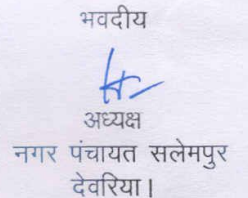 भवदीय
अध्यक्ष
नगर पंचायत सलेमपुर
देवरिया।